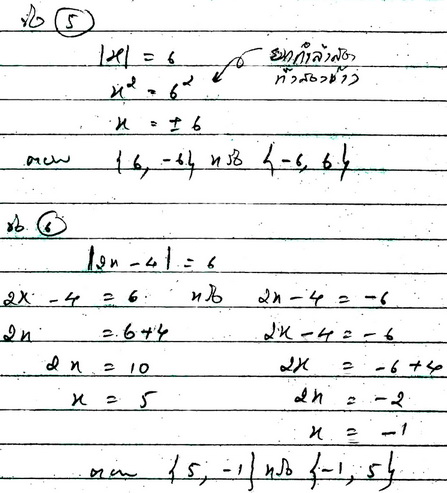 ข้อ 5
|x| = 6
ยกกำลังสอง
ทั้งสองข้าง
x² = 6²
x = ±6
ตอบ {6, -6} หรือ {-6, 6}
ข้อ 6
|2x - 4| = 6
2x - 4 = 6 หรือ 2x - 4 = -6
2x = 6+4 2x - 4 = -6
2x = 10 2x = -6 + 4
x = 5 2x = -2
x = -1
ตอบ {5, -1} หรือ {-1, 5}